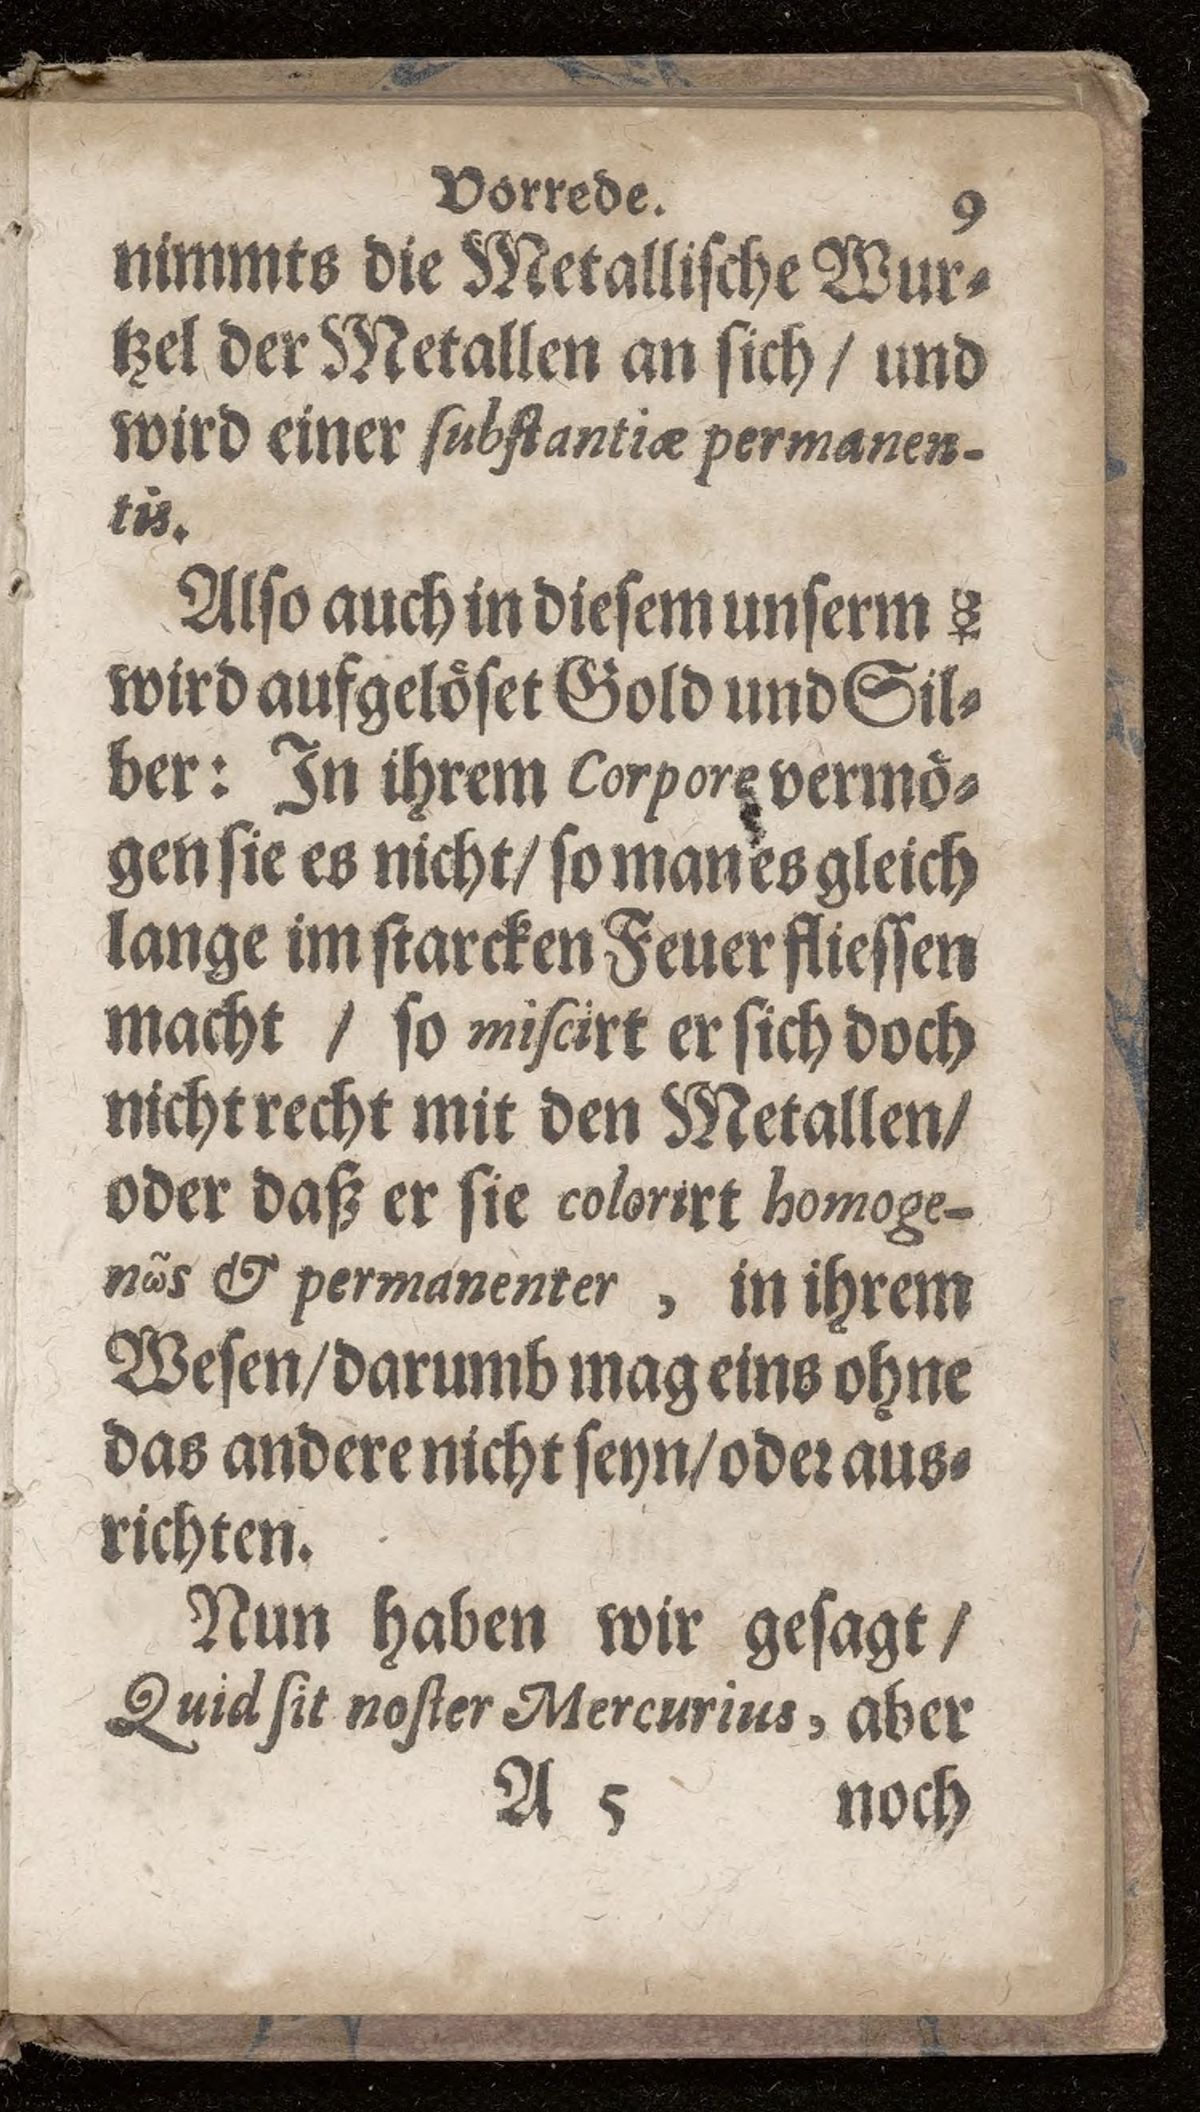 Vorrede. 9
nimmts die Metallische Wur-
tzel der Metallen an sich / und
wird einer substantiæ permanen-
tis.
Also auch in diesem unserm ☿
wird aufgelöset Gold und Sil-
ber: In ihrem Corpore vermö-
gen sie es nicht / so man es gleich
lange im starcken Feuer fliessen
macht / so miscirt er sich doch
nicht recht mit den Metallen /
oder daß er sie colorirt homoge-
nω̃s & permanenter , in ihrem
Wesen / darumb mag eins ohne
das andere nicht seyn / oder aus-
richten.
Nun haben wir gesagt /
Quid sit noster Mercurius, aber
A 5 noch